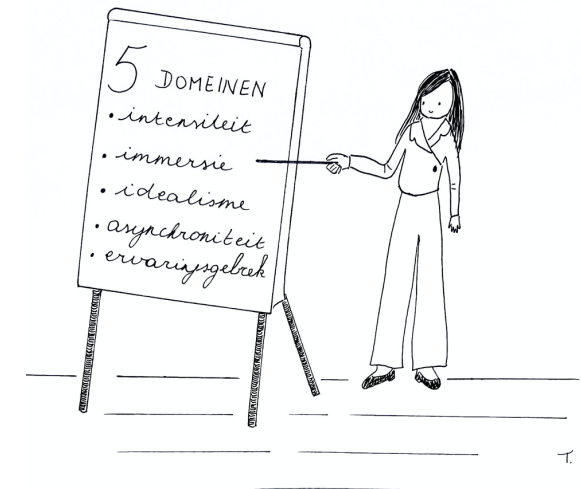 5 DOMEINEN
• intensiteit
• immersie
• idealisme
• asynchroniteit
• ervaringsgebrek
T.